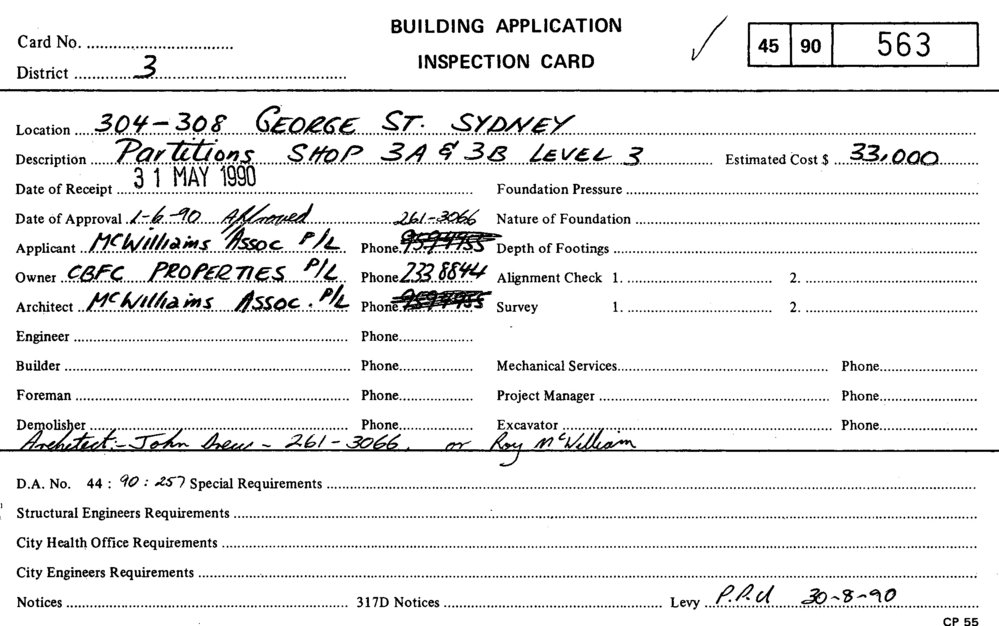 BUILDING APPLICATION
INSPECTION CARD
Card No.
45 90 563
District 3
Location 304-308 GEORGE ST. SYDNEY
Description Partitions SHOP 3A & 3B LEVEL 3 Estimated Cost $ 33,000
Date of Receipt 31 MAY 1990 Foundation Pressure
Date of Approval 1-6-90 Approved 261-3066 Nature of Foundation
Applicant McWilliams Assoc P/L Phone Depth of Footings
Owner CBFC PROPERTIES P/L Phone 233 8844 Alignment Check 1. 2.
Architect McWilliams Assoc. P/L Phone Survey 1. 2.
Engineer Phone
Builder Phone Mechanical Services Phone
Foreman Phone Project Manager Phone
Demolisher Phone Excavator Phone
Architect:- John Drew - 261-3066. or Roy McWilliam
D.A. No. 44 : 90 : 257 Special Requirements
Structural Engineers Requirements
City Health Office Requirements
City Engineers Requirements
Notices 317D Notices Levy 30-8-90
CP 55